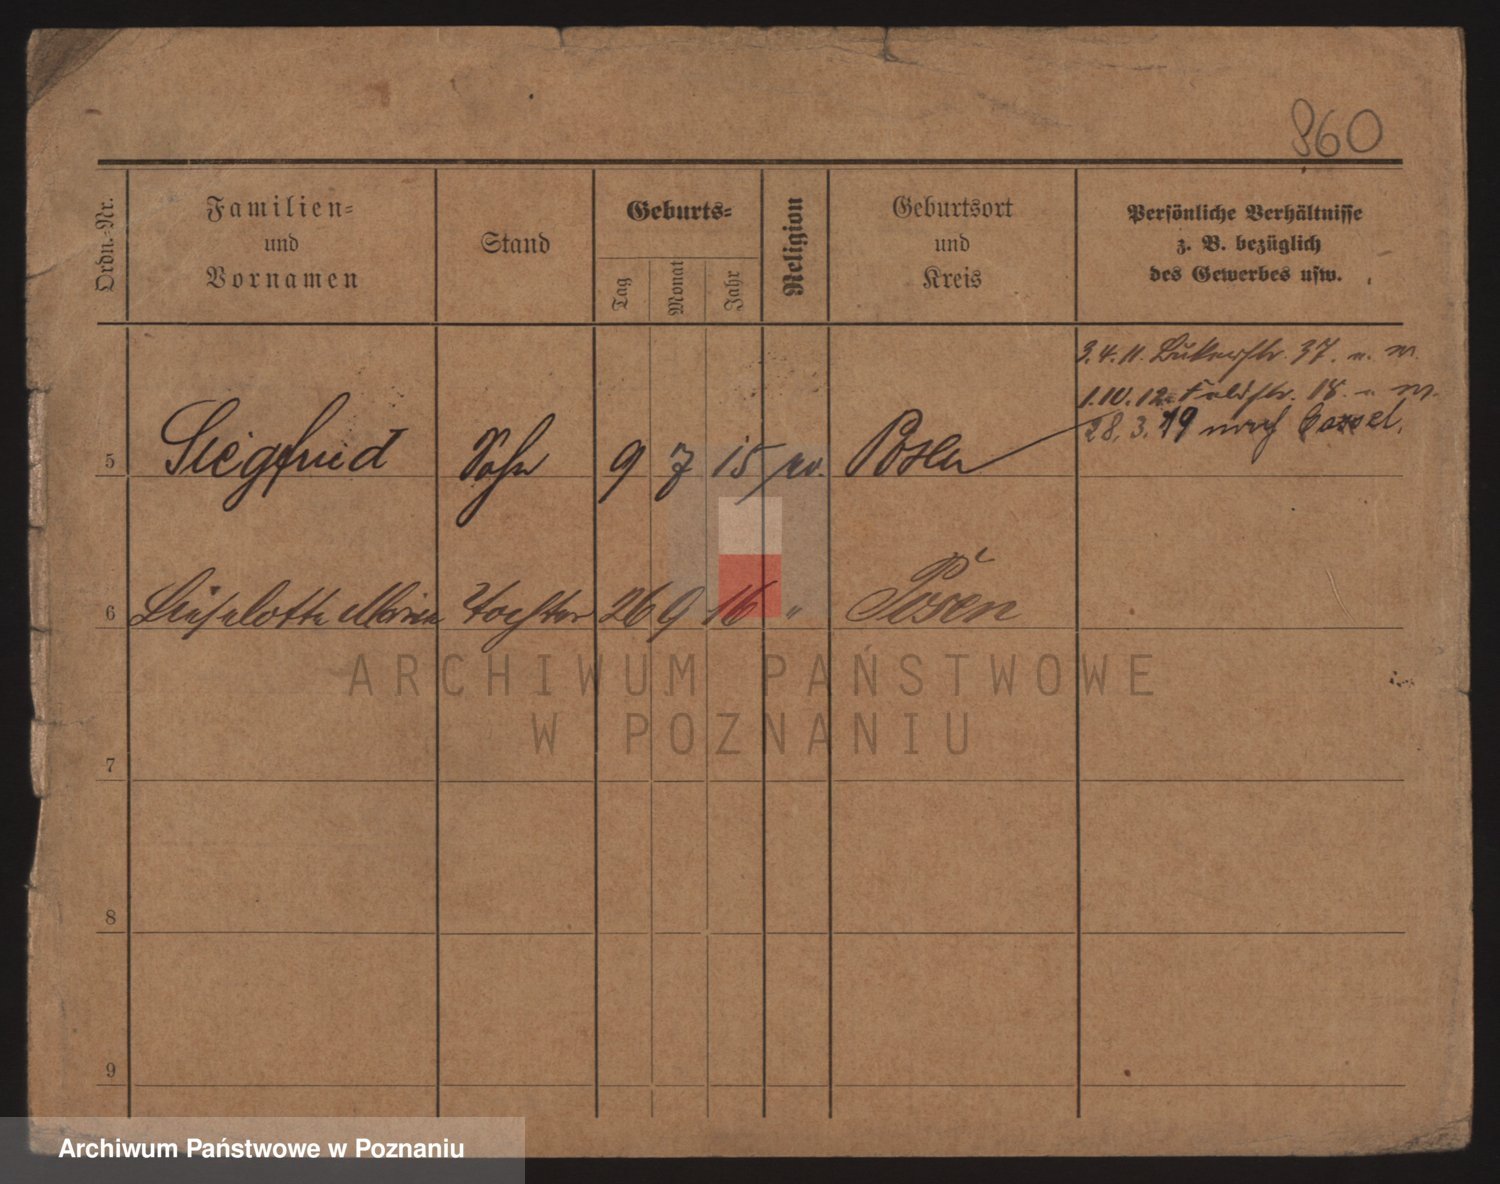 860
Ordn.-Nr.
Familien-
und
Vornamen
Stand
Geburts-
Tag
Monat
Jahr
Religion
Geburtsort
und
Kreis
Persönliche Verhältnisse
z. B. bezüglich
des Gewerbes usw.
3.4.11. 37.
1.10.12. Feldstr. 18.
28.3.19 nach Cassel.
5 Siegfried Sohn 9 7 15 ev. Posen
6 Lieselotte Maria Tochter 26 9 16 " Posen
7
8
9
ARCHIWUM PAŃSTWOWE
W POZNANIU
Archiwum Państwowe w Poznaniu